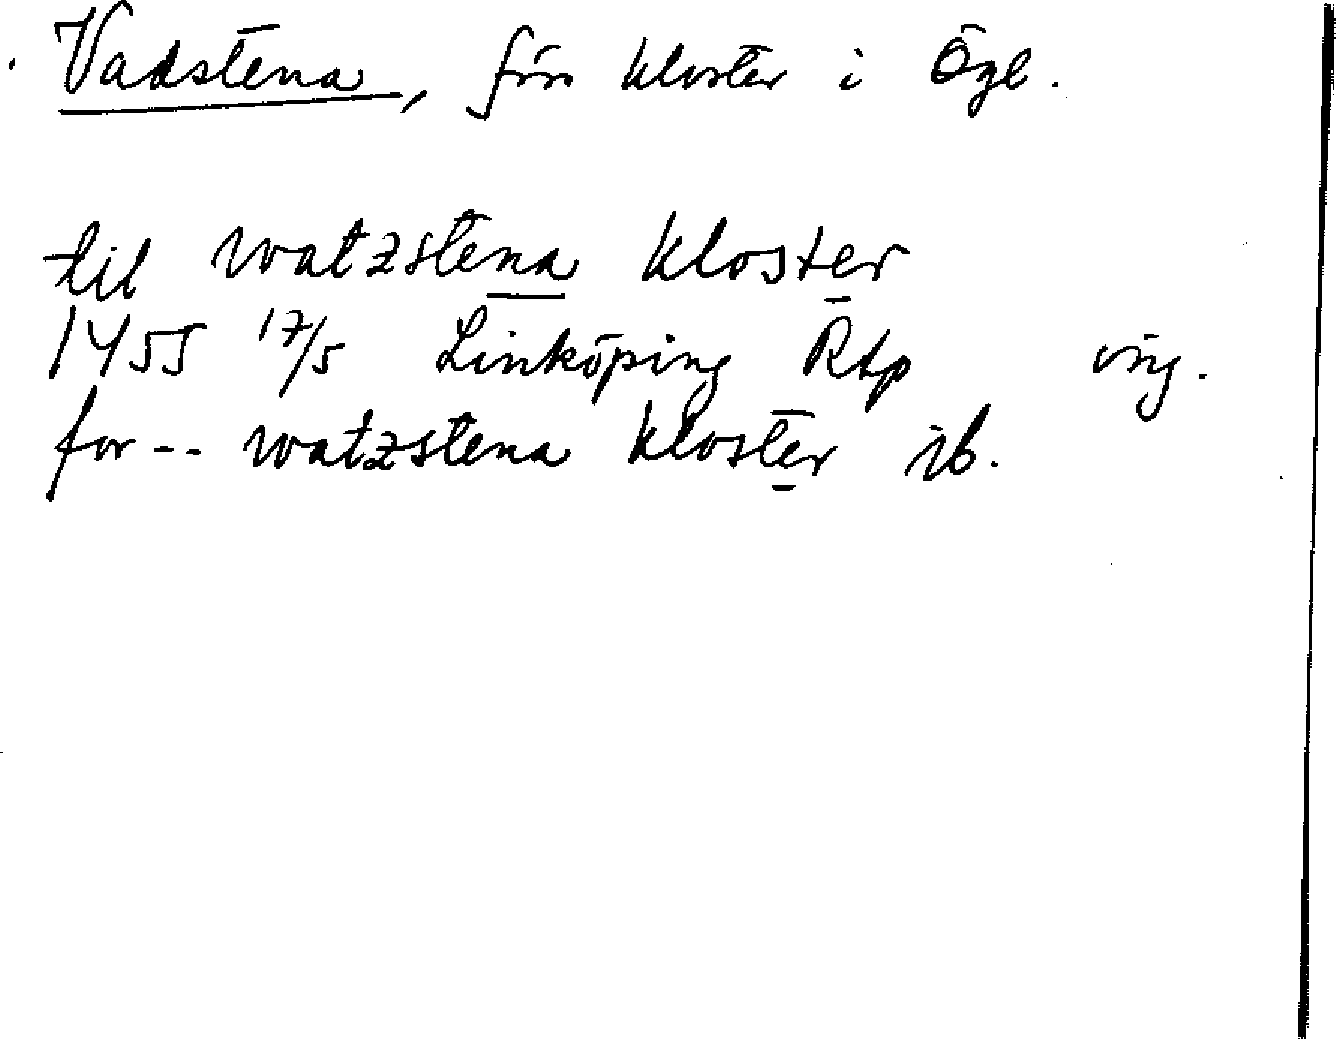 Vadstena, förr kloster i Ögl.
til watzstena kloster
1455 17/5 Linköping Rtp orig.
for -- watzstena kloster ib.